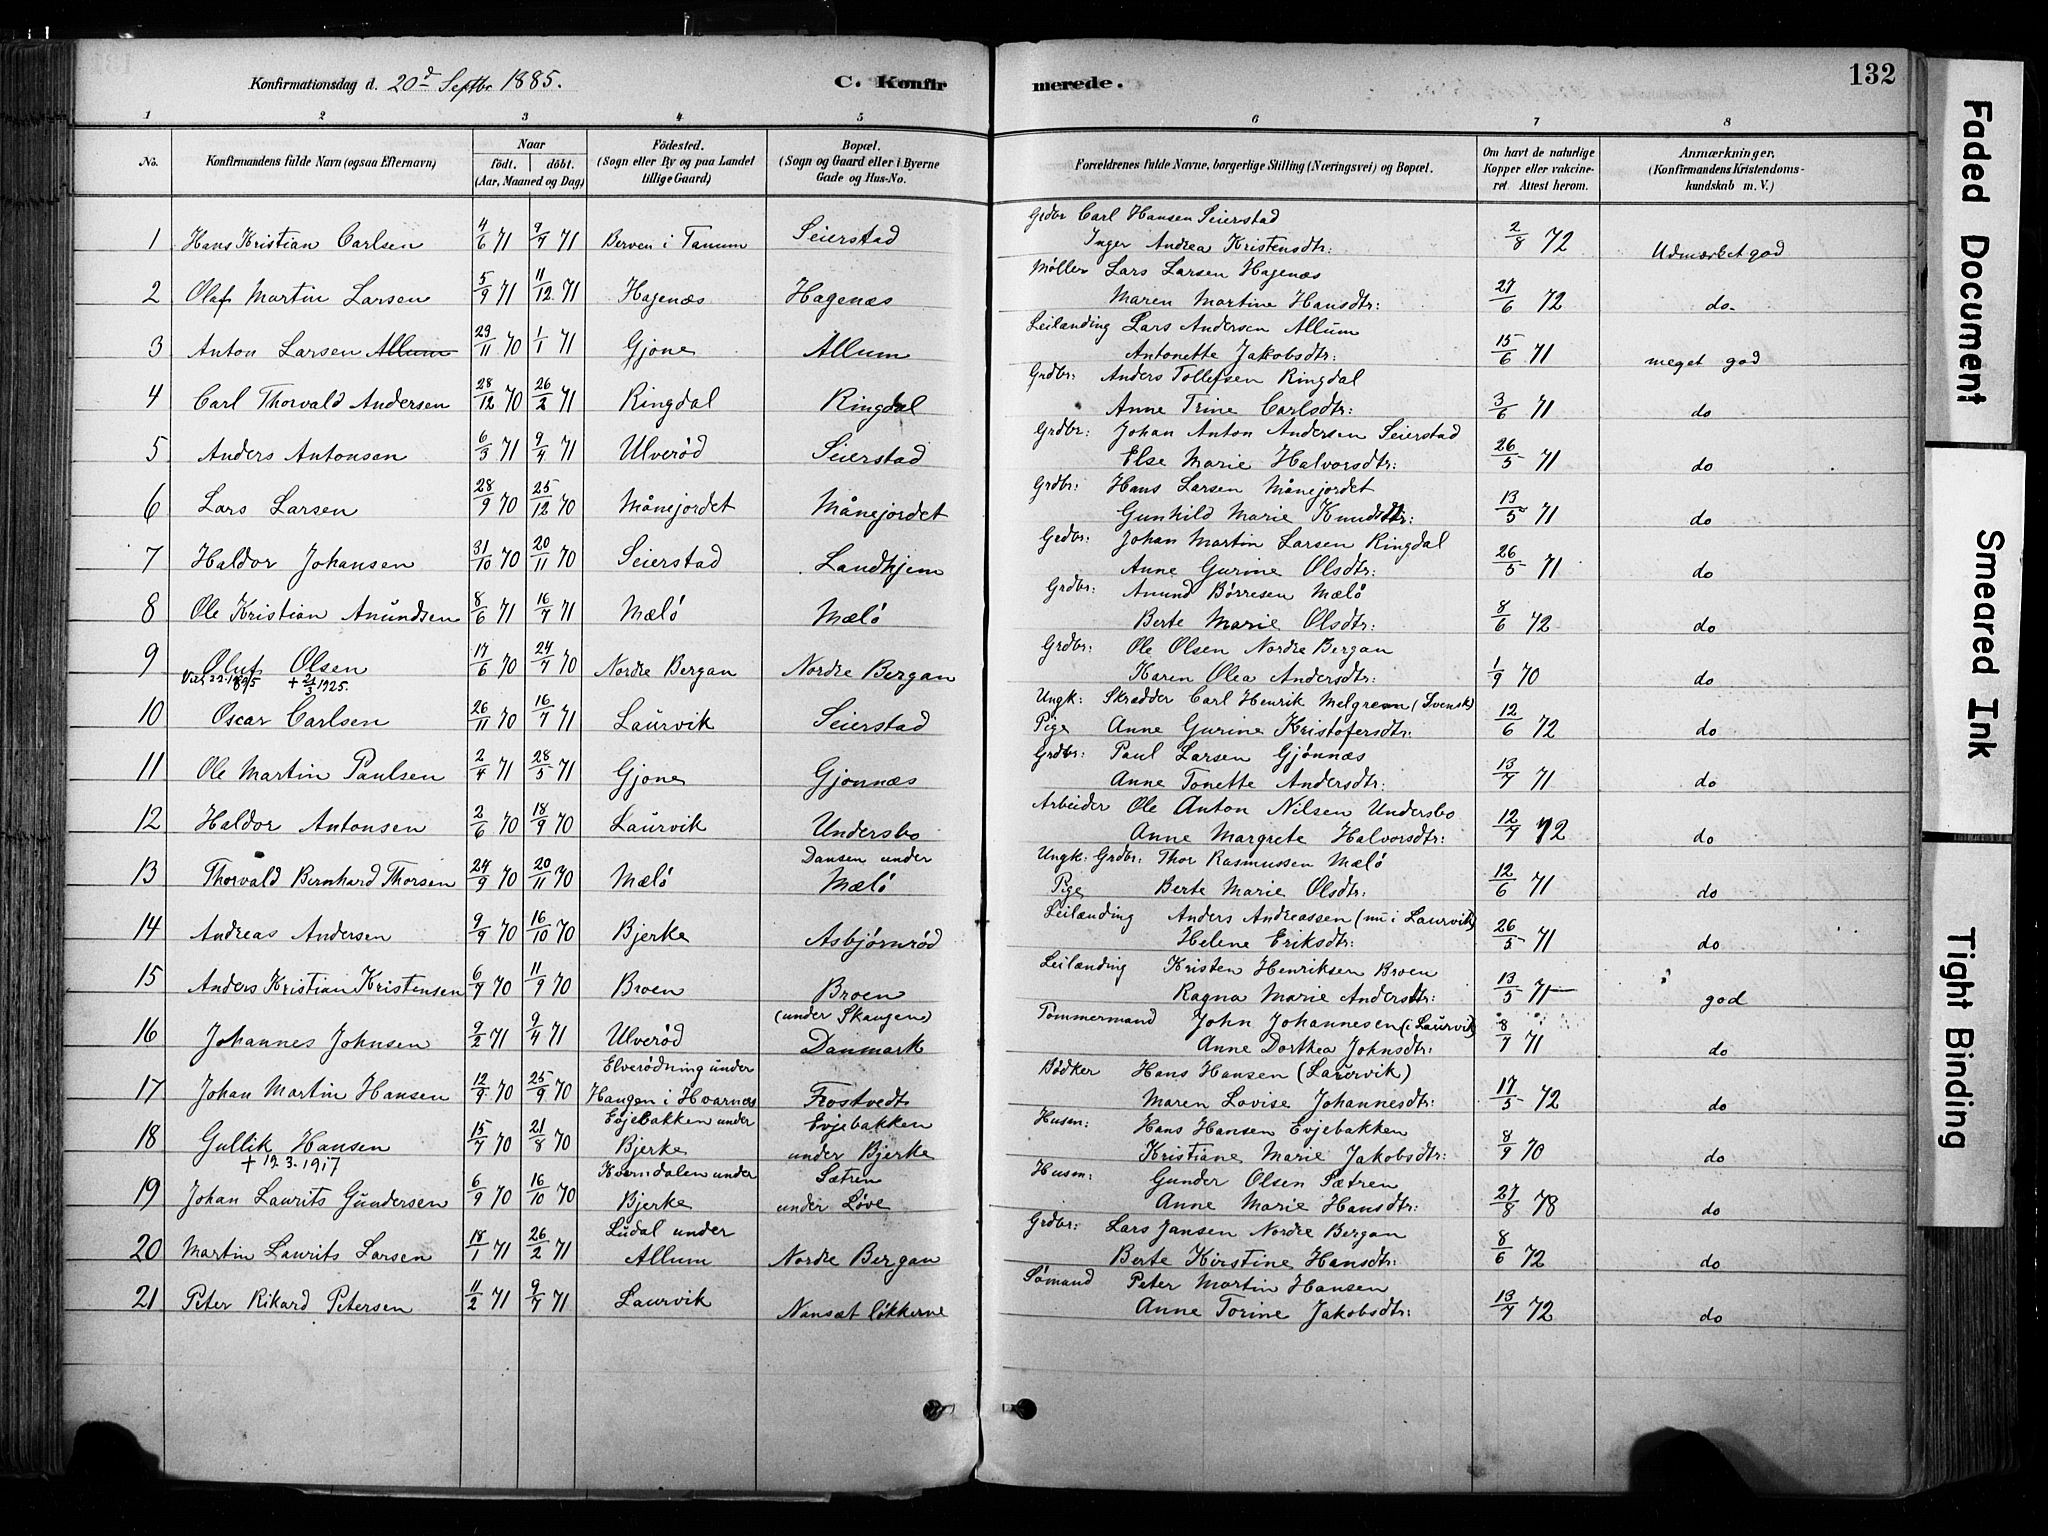 Konfirmationsdag d. 20d Septbr 1885.
C. Konfirmerede.
132
1 2 3 4 5 6 7 8
No.
Konfirmandens fulde Navn (ogsaa Efternavn)
Naar
födt. döbt.
(Aar, Maaned og Dag)
Födested.
(Sogn eller By og paa Landet
tillige Gaard)
Bopæl.
(Sogn og Gaard eller i Byerne
Gade og Hus-No.
Forældrenes fulde Navne, borgerlige Stilling (Næringsvei) og Bopæl.
Om havt de naturlige
Kopper eller vakcine-
ret. Attest herom.
Anmærkninger.
(Konfirmandens Kristendoms-
kundskab m. V.)
Grdbr Carl Hansen Seierstad
1 Hans Kristian Carlsen 4/6 71 9/7 71 Berven i Tanum Seierstad Inger Andrea Kristensdtr: 2/8 72 Udmærket god
Møller Lars Larsen Hagenæs
2 Olaf Martin Larsen 5/9 71 11/12 71 Hagenæs Hagenæs Maren Martine Hansdtr: 27/6 72 do
Leilænding Lars Andersen Allum
3 Anton Larsen Allum 29/11 70 1/1 71 Gjone Allum Antonette Jakobsdtr: 15/6 71 meget god
Grdbr: Anders Tollefsen Ringdal
4 Carl Thorvald Andersen 28/12 70 26/2 71 Ringdal Ringdal Anne Trine Carlsdtr: 3/6 71 do
Grdbr: Johan Anton Andersen Seierstad
5 Anders Antonsen 6/3 71 9/4 71 Ulverød Seierstad Else Marie Halvorsdtr: 26/5 71 do
Grdbr: Hans Larsen Månejordet
6 Lars Larsen 28/9 70 25/12 70 Månejordet Månejordet Gunhild Marie Knudsdtr: 13/5 71 do
Grdbr: Johan Martin Larsen Ringdal
7 Haldor Johansen 31/10 70 20/11 70 Seierstad Landhjem Anne Gurine Olsdtr: 26/5 71 do
Grdbr: Amund Börresen Mælö
8 Ole Kristian Amundsen 8/6 71 16/7 71 Mælö Mælö Berte Marie Olsdtr: 8/6 72 do
Grdbr: Ole Olsen Nordre Bergan
9 Oluf Olsen 17/6 70 24/7 70 Nordre Bergan Nordre Bergan Karen Olea Andersdtr: 1/9 70 do
+ 21/3 1925.
Ungk: Skrædder Carl Henrik Melgreen (Svensk)
10 Oscar Carlsen 26/11 70 16/7 71 Laurvik Seierstad Pige Anne Gurine Kristofersdtr: 12/6 72 do
Grdbr: Paul Larsen Gjönnæs
11 Ole Martin Paulsen 2/4 71 28/5 71 Gjone Gjonnæs Anne Tonette Andersdtr: 13/7 71 do
Arbeider Ole Anton Nilsen Undersbo
12 Haldor Antonsen 2/6 70 18/9 70 Laurvik Undersbo Anne Margrete Halvorsdtr: 12/7 72 do
Dansen under
Ungk: Grdbr: Thor Rasmussen Mælö
13 Thorvald Bernhard Thorsen 24/9 70 20/11 70 Mælö Mælö Pige Berte Marie Olsdtr: 12/6 71 do
Leilænding Anders Andreassen (nu i Laurvik)
14 Andreas Andersen 9/9 70 16/10 70 Bjerke Asbjørnrød Helene Eriksdtr: 26/5 71 do
Leilænding Kristen Henriksen Broen
15 Anders Kristian Kristensen 6/7 70 11/9 70 Broen Broen Ragna Marie Andersdtr: 13/5 71 god
(under Skaugen)
Tömmermand John Johannesen (i Laurvik)
16 Johannes Johnsen 9/2 71 9/4 71 Ulverød Danmark Anne Dorthea Johnsdtr: 8/7 71 do
Elverødning under
Bödker Hans Hansen (Laurvik)
17 Johan Martin Hansen 12/9 70 25/9 70 Haugen i Hvarnæs Frostvedt Maren Lovise Johannesdtr: 17/5 72 do
Evjebakken under Evjebakken
Husm: Hans Hansen Evjebakken
18 Gullik Hansen 15/7 70 21/8 70 Bjerke under Bjerke Kristiane Marie Jakobsdtr: 8/9 70 do
+ 12.3.1917
Kverndalen under Sætren
Husm: Gunder Olsen Sætren
19 Johan Laurits Gundersen 6/9 70 16/10 70 Bjerke under Löve Anne Marie Hansdtr: 27/8 78 do
Ludal under
Grdbr: Lars Jansen Nordre Bergan
20 Martin Laurits Larsen 18/1 71 26/2 71 Allum Nordre Bergan Berte Kirstine Hansdtr: 8/6 72 do
Sömand Peter Martin Hansen
21 Peter Rikard Petersen 11/2 71 9/7 71 Laurvik Nansæt lökkerne Anne Torine Jakobsdtr: 13/7 72 do
Faded Document
Smeared Ink
Tight Binding